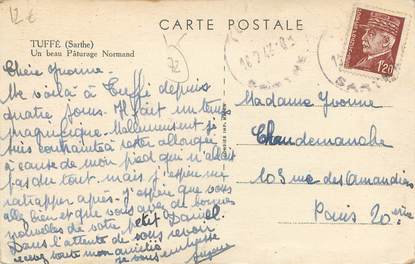 12 €
CARTE POSTALE
TUFFÉ (Sarthe)
Un beau Pâturage Normand
72
1f20
Chère Yvonne.
Me voilà à Tuffé depuis
quatre jours. Il fait un temps
magnifique. Malheureusement je
suis contrainte à rester allongée
à cause de mon pied qui n'allait
pas du tout. mais j'espère me
rattraper après. J'espère que vous
allez bien et que vous avez de bonnes
nouvelles de votre petit Daniel.
Dans l'attente de vous revoir
recevez toute mon amitié
je vous embrasse
Madame Yvonne
Chaudemanche
103 rue des Amandiers
Paris 20